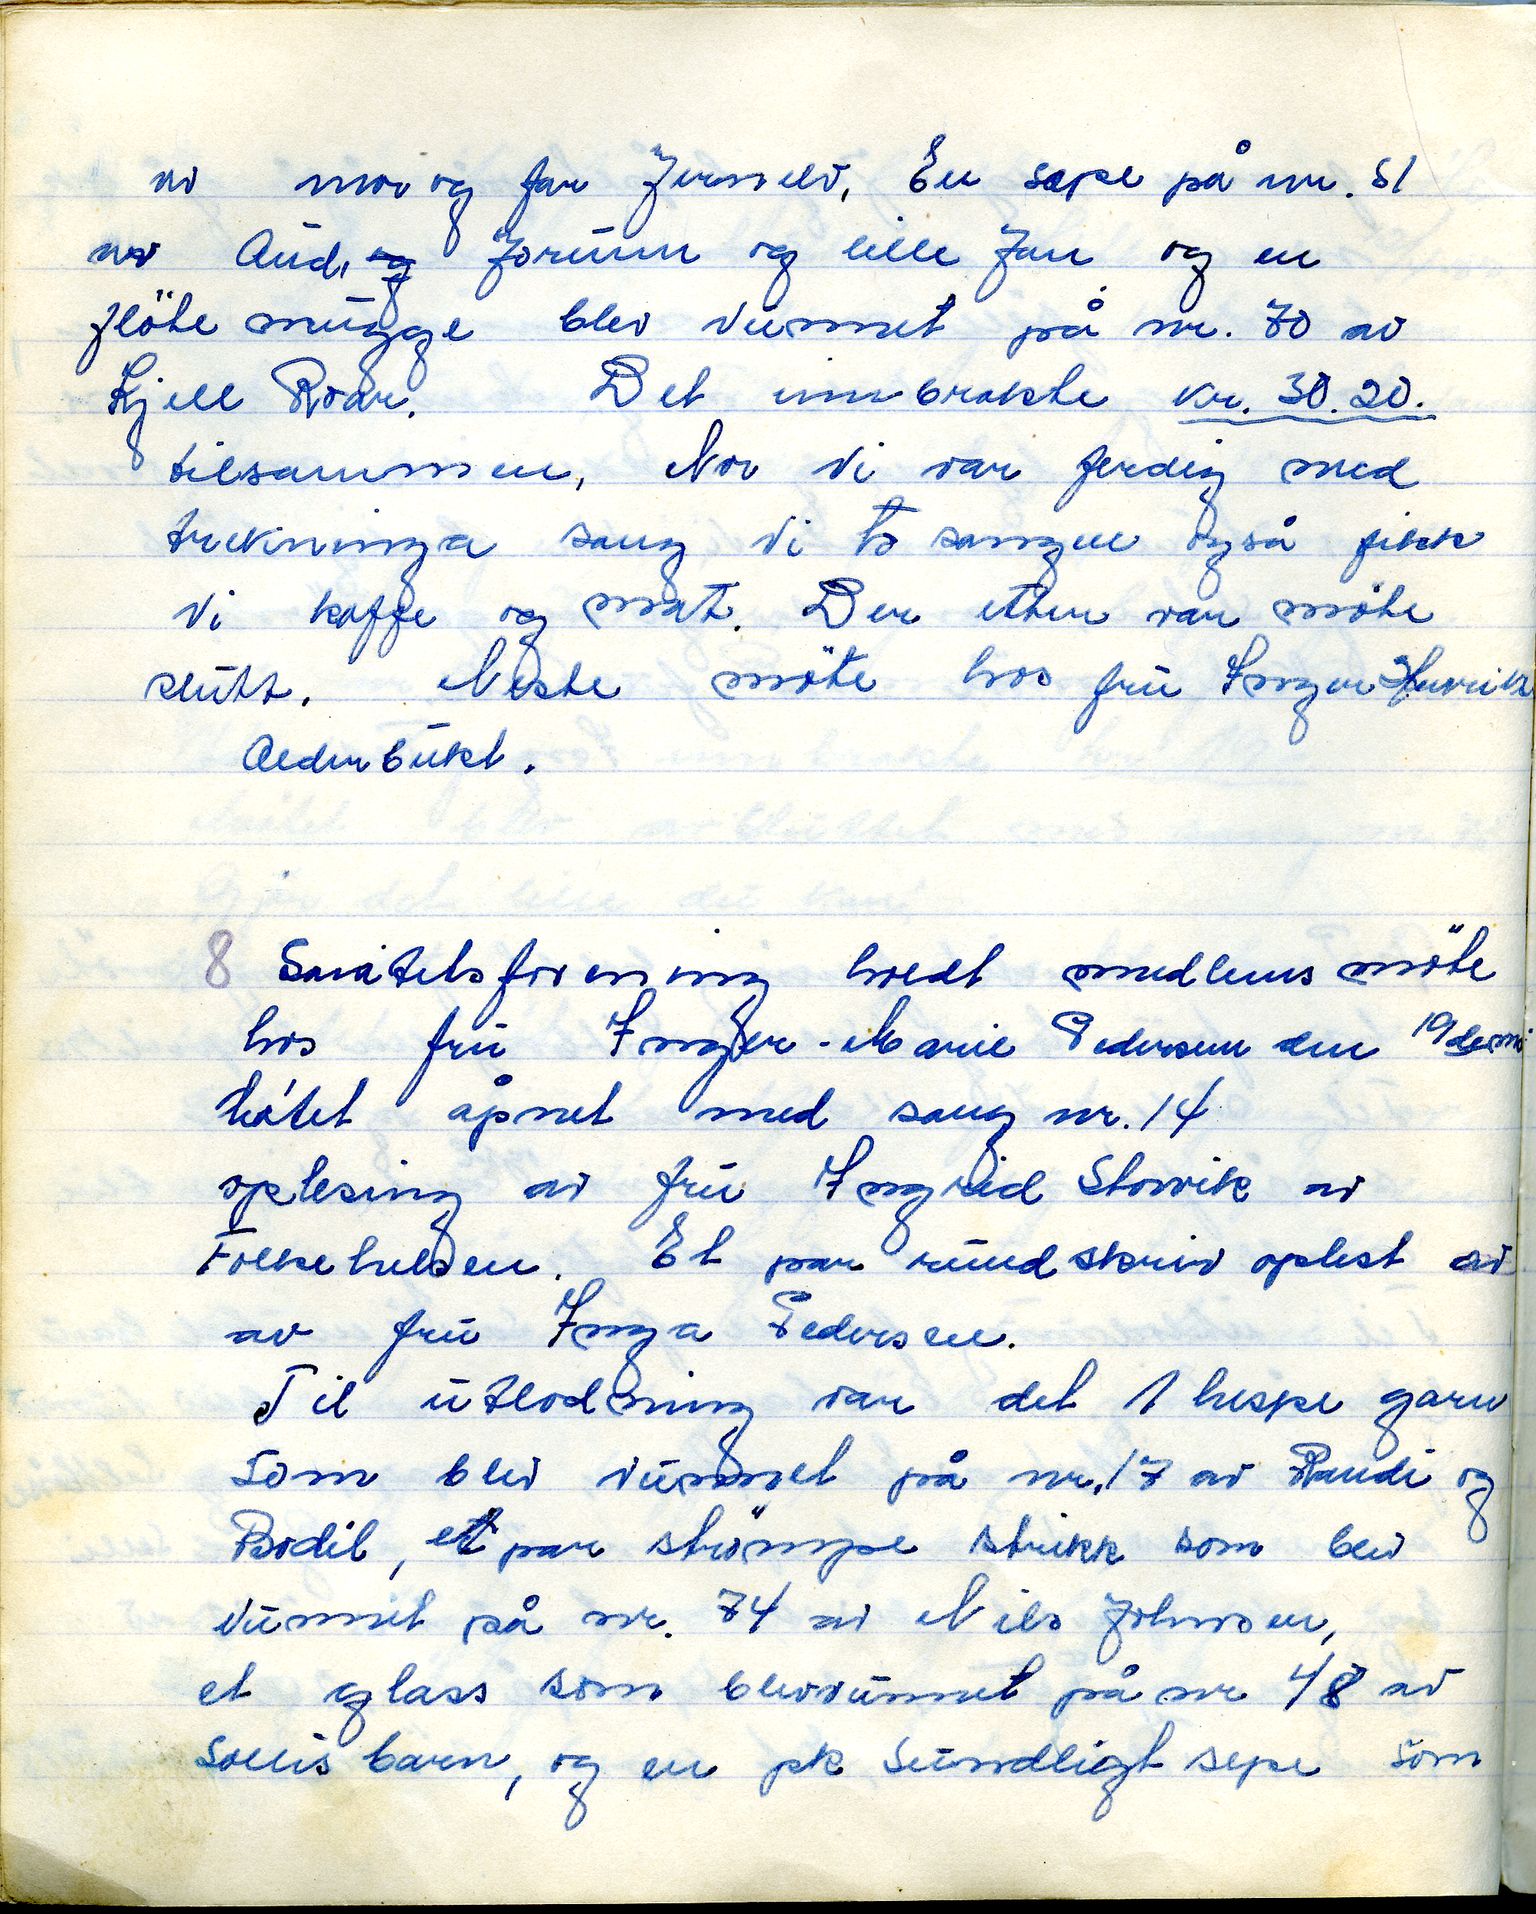 av mor og far Jernelv, En sepe på nr. 51
av Aud, og Jorunn og lille Jan og en
flöte mugge blev vunnet på nr. 70 av
Kjell Roar. Det innbrakte kr. 30.20.
tilsammen, Nor vi var ferdig med
trekninga sang vi to sanger også fikk
vi kaffe og mat. Der etter var möte
slutt. Neste möte hos fru Inger Henrik
Alderbukt.
8 Sanitetsforening holdt medlems möte
hos fru Inger-Marie Pedersen den 19
Mötet åpnet med sang nr. 14
oplesing av fru Ingrid Storvik av
Folkehelsen. Et par rundskriv oplest av
av fru Inga Pedersen.
Til utlodning var det 1 hespe garn
som blev vunnet på nr. 17 av Randi og
Bodil, et par strömpe strikk som blev
vunnet på nr. 74 av Nils Johnsen,
et glass som blev vunnet på nr 48 av
Sollis barn, og en pk Sunnligt sepe som